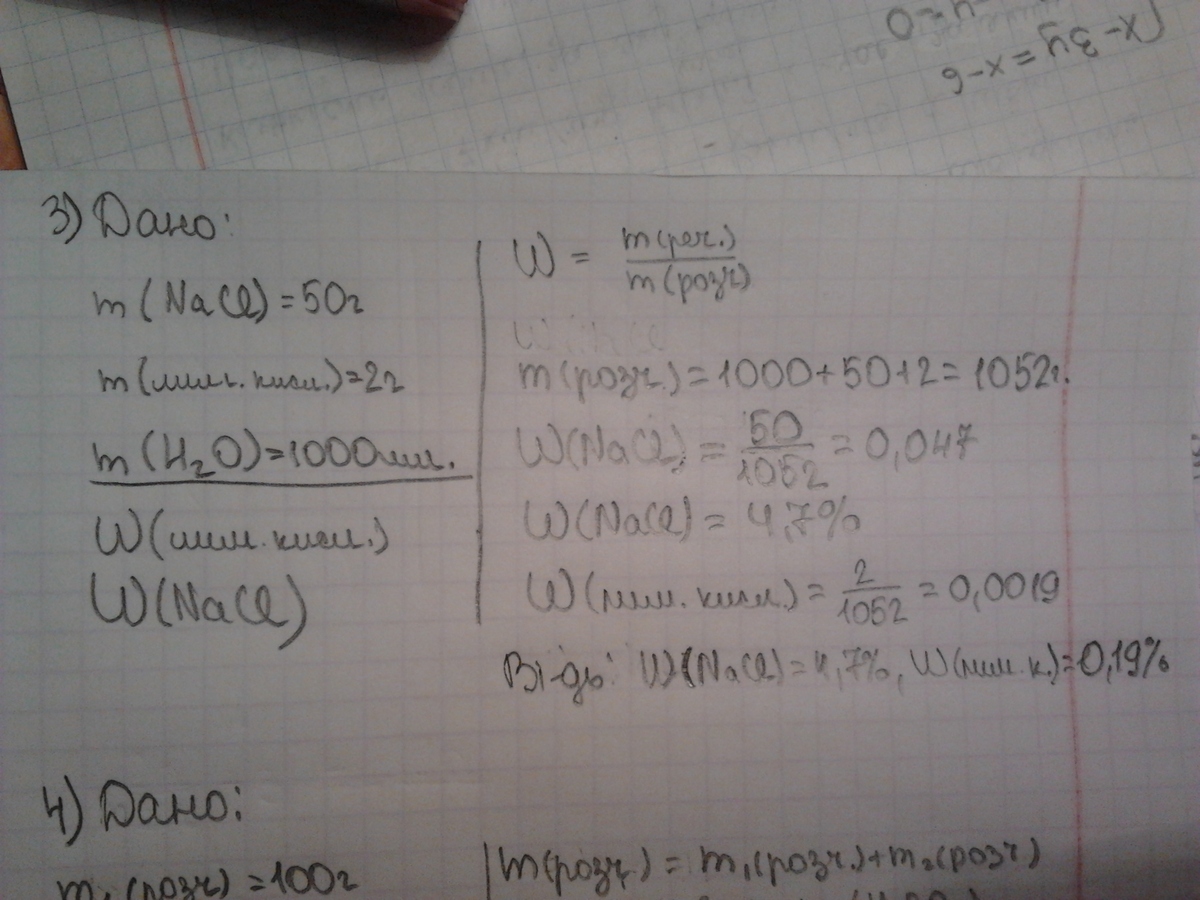 -y=0
x-3y=x-6
3) Дано:
m(NaCl)=50г
m(лим.кисл.)=2г
m(H₂O)=1000мл.
W(лим.кисл.)
W(NaCl)
W = m(реч.)/m(розч)
m(розч.)=1000+50+2=1052г.
W(NaCl)=50/1052=0,047
W(NaCl)=4,7%
W(лим.кисл.)=2/1052=0,0019
Від-дь: W(NaCl)=4,7%, W(лим.к.)=0,19%
4) Дано:
m₁(розч)=100г
m(розч)=m₁(розч.)+m₂(розч)